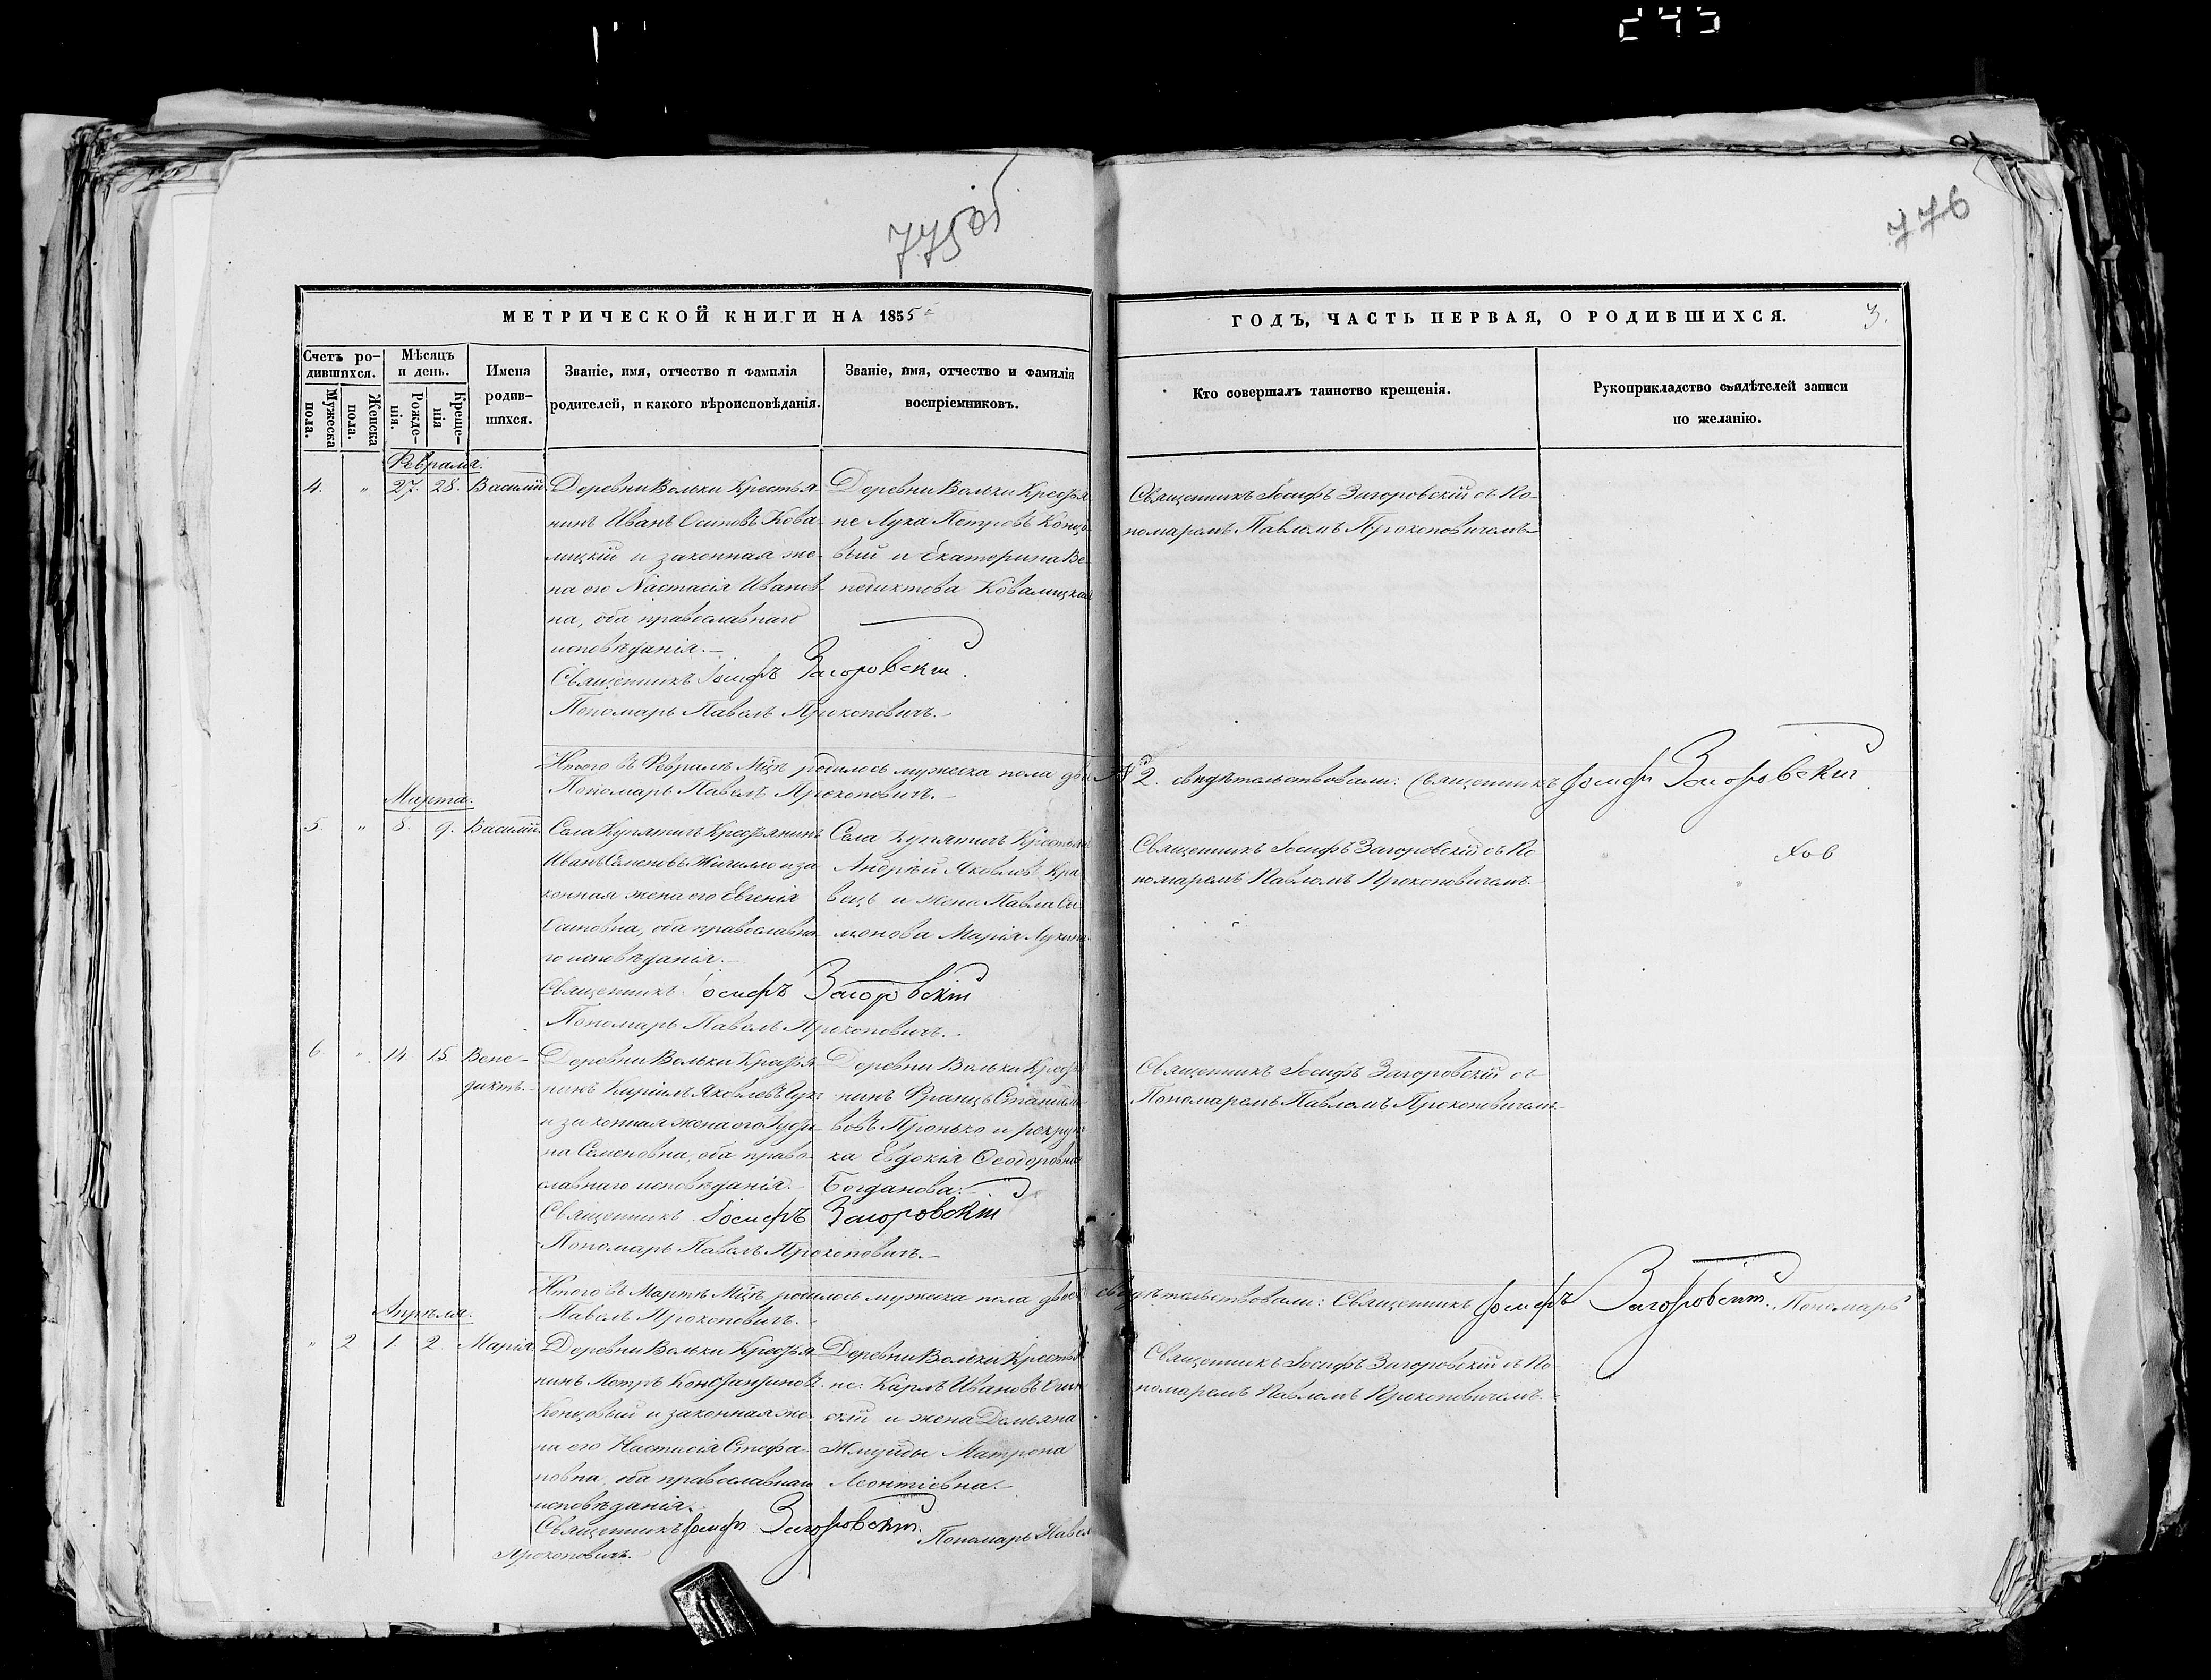 243
775 об
776
МЕТРИЧЕСКОЙ КНИГИ НА 1855
ГОДЪ, ЧАСТЬ ПЕРВАЯ, О РОДИВШИХСЯ.
3.
Счетъ ро-
дившихся.
Мужеска
пола.
Женска
пола.
Мѣсяцъ
и день.
Рожде-
нія.
Креще-
нія
Имена
родив-
шихся.
Званіе, имя, отчество и фамилія
родителей, и какого вѣроисповѣданія.
Званіе, имя, отчество и фамилія
воспріемниковъ.
Кто совершалъ таинство крещенія.
Рукоприкладство свидѣтелей записи
по желанію.
Февраля.
4. " 27. 28. Василій.
Деревни Вольки Крестья
нинъ Иванъ Осиповъ Кова-
лицкій и законная же-
на его Настасія Иванов-
на, оба православнаго
исповѣданія.-
Священникъ Іосифъ Загоровскій.
Пономарь Павелъ Прокоповичъ.-
Деревни Вольки Крестья
не Лука Петровъ Концо
вый и Екатерина Ве-
недиктова Ковалицкая
Священникъ Іосифъ Загоровскій съ По-
номаремъ Павломъ Прокоповичемъ.-
Итого въ Февралѣ Мцѣ родилось мужеска пола два № 2. свидѣтельствовали: Священникъ Іосифъ Загоровскій
Пономарь Павелъ Прокоповичъ.-
Марта.
5. " 8. 9. Василій.
Села Купятичъ Крестьянинъ
Иванъ Семеновъ Жигалло и за
конная жена его Евгенія
оба православна-
го исповѣданія.-
Священникъ Іосифъ Загоровскій
Пономарь Павелъ Прокоповичъ.-
Села Купятичъ Крестьяне
Андрей Яковлевъ Кра
вецъ и жена Павла Си
монова Марія Лукина.
Священникъ Іосифъ Загоровскій съ По
номаремъ Павломъ Прокоповичемъ.-
6 " 14. 15. Вене-
диктъ.-
Деревни Вольки Крестья
нинъ Кирилъ Яковлевъ
и законная жена его
на Семеновна, оба право-
славнаго исповѣданія.-
Священникъ Іосифъ Загоровскій
Пономарь Павелъ Прокоповичъ.-
Деревни Вольки Крестья
нинъ Францъ Станисла-
вовъ Пронько и рекрут
ка Евдокія Ѳеодоровна
Богданова.-
Священникъ Іосифъ Загоровскій съ
Пономаремъ Павломъ Прокоповичемъ.-
Итого въ Мартѣ Мцѣ родилось мужеска пола двое свидѣтельствовали: Священникъ Іосифъ Загоровскій. Пономарь
Павелъ Прокоповичъ.-
Апрѣля.
" 2 1. 2. Марія
Деревни Вольки Крестья
нинъ Петръ Констанриновъ
Концовый и законная же-
на его Настасія Стефа-
новна, оба православнаго
исповѣданія.-
Священникъ Іосифъ Загоровскій. Пономарь Павелъ
Прокоповичъ.-
Деревни Вольки Крестья
не: Карлъ Ивановъ
скій и жена Демьяна
Жмуйды Матрона
Леонтіевна.-
Священникъ Іосифъ Загоровскій съ По-
номаремъ Павломъ Прокоповичемъ.-